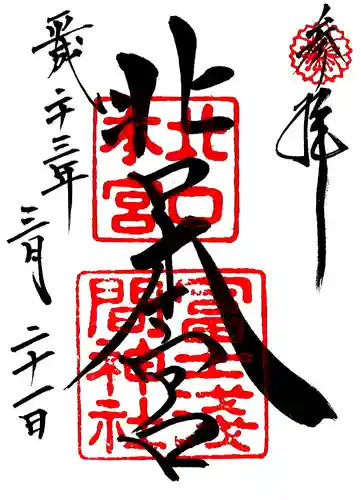 奉拝
北口本宮
北口
本宮
冨士浅
間神社
平成二十三年
三月二十一日